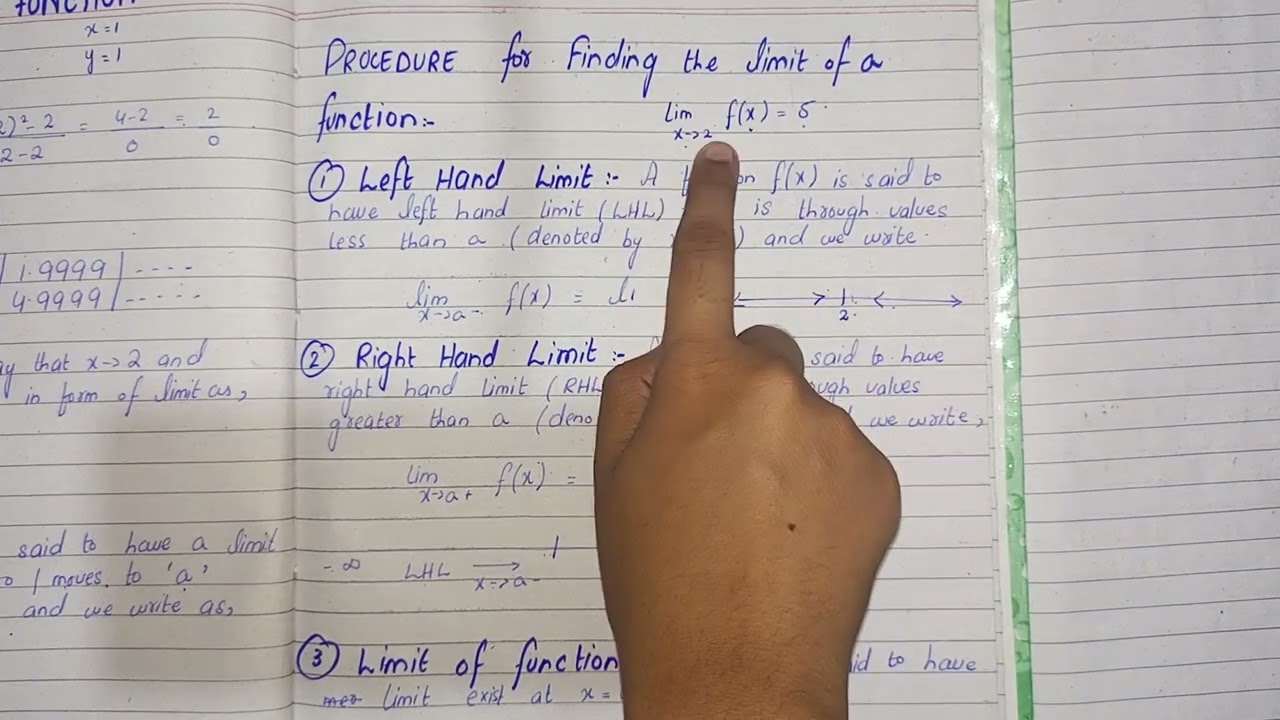 FUNCTION
x=1
y=1
)²-2 / 2-2 = 4-2 / 0 = 2 / 0
1.9999 | ----
4.9999 | -----
that x→2 and
in form of limit as,
said to have a limit
moves to 'a'
and we write as,
PROCEDURE for Finding the limit of a
function:-
lim x→2 f(x) = 5
① Left Hand Limit :- A f(x) is said to
have left hand limit (LHL) is through values
less than a (denoted by ) and we write
lim x→a- f(x) = l1
2
② Right Hand Limit :- said to have
right hand limit (RHL values
greater than a ( we write,
lim x→a+ f(x) =
-∞ LHL → x→a-
③ Limit of function to have
limit exist at x =